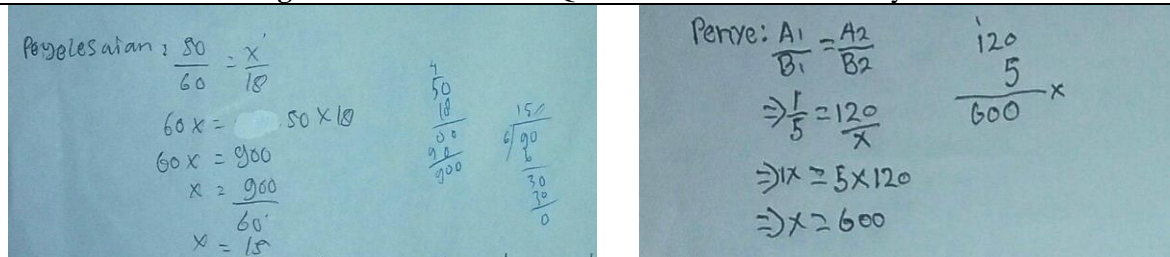 Peyelesaian : 50/60 = x/18
60x = 50 x 18
60x = 900
x = 900/60
x = 15
4
50
18
00
90
900
15
6/90
6
30
30
0
Penye: A1/B1 = A2/B2
⇒ 1/5 = 120/x
⇒ 1x = 5x120
⇒ x = 600
1
120
5 x
600